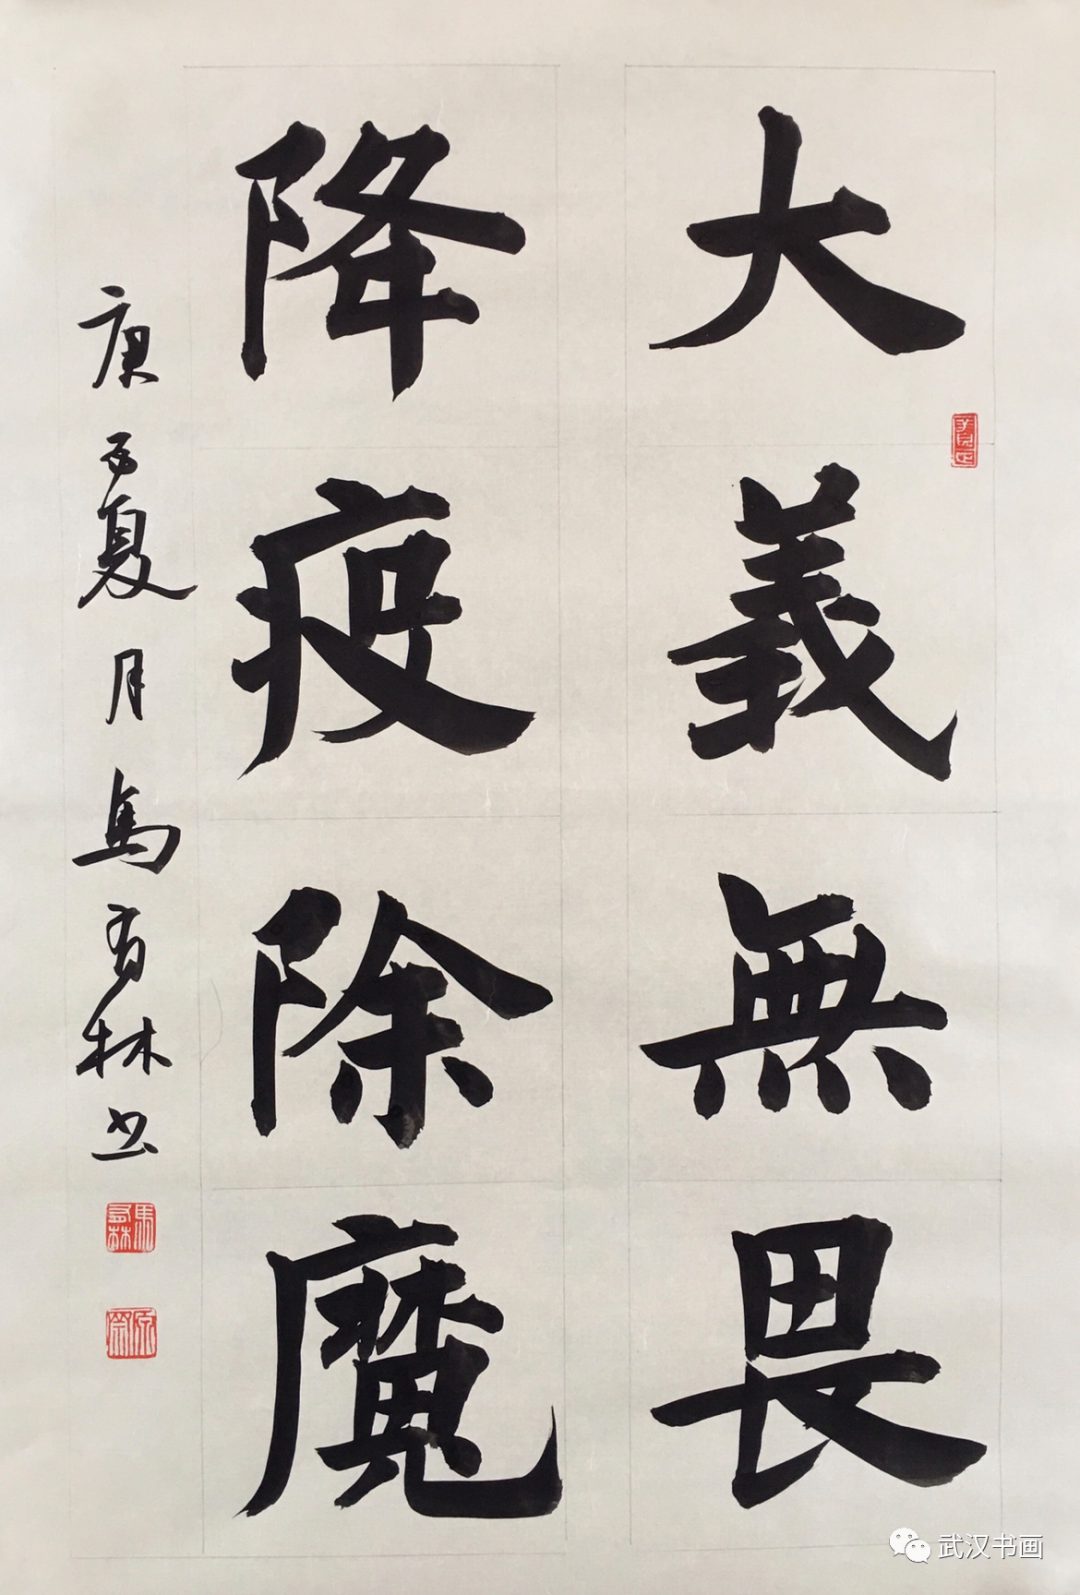 大義無畏
降疫除魔
庚子夏月馬有林书
馬有林
武汉书画